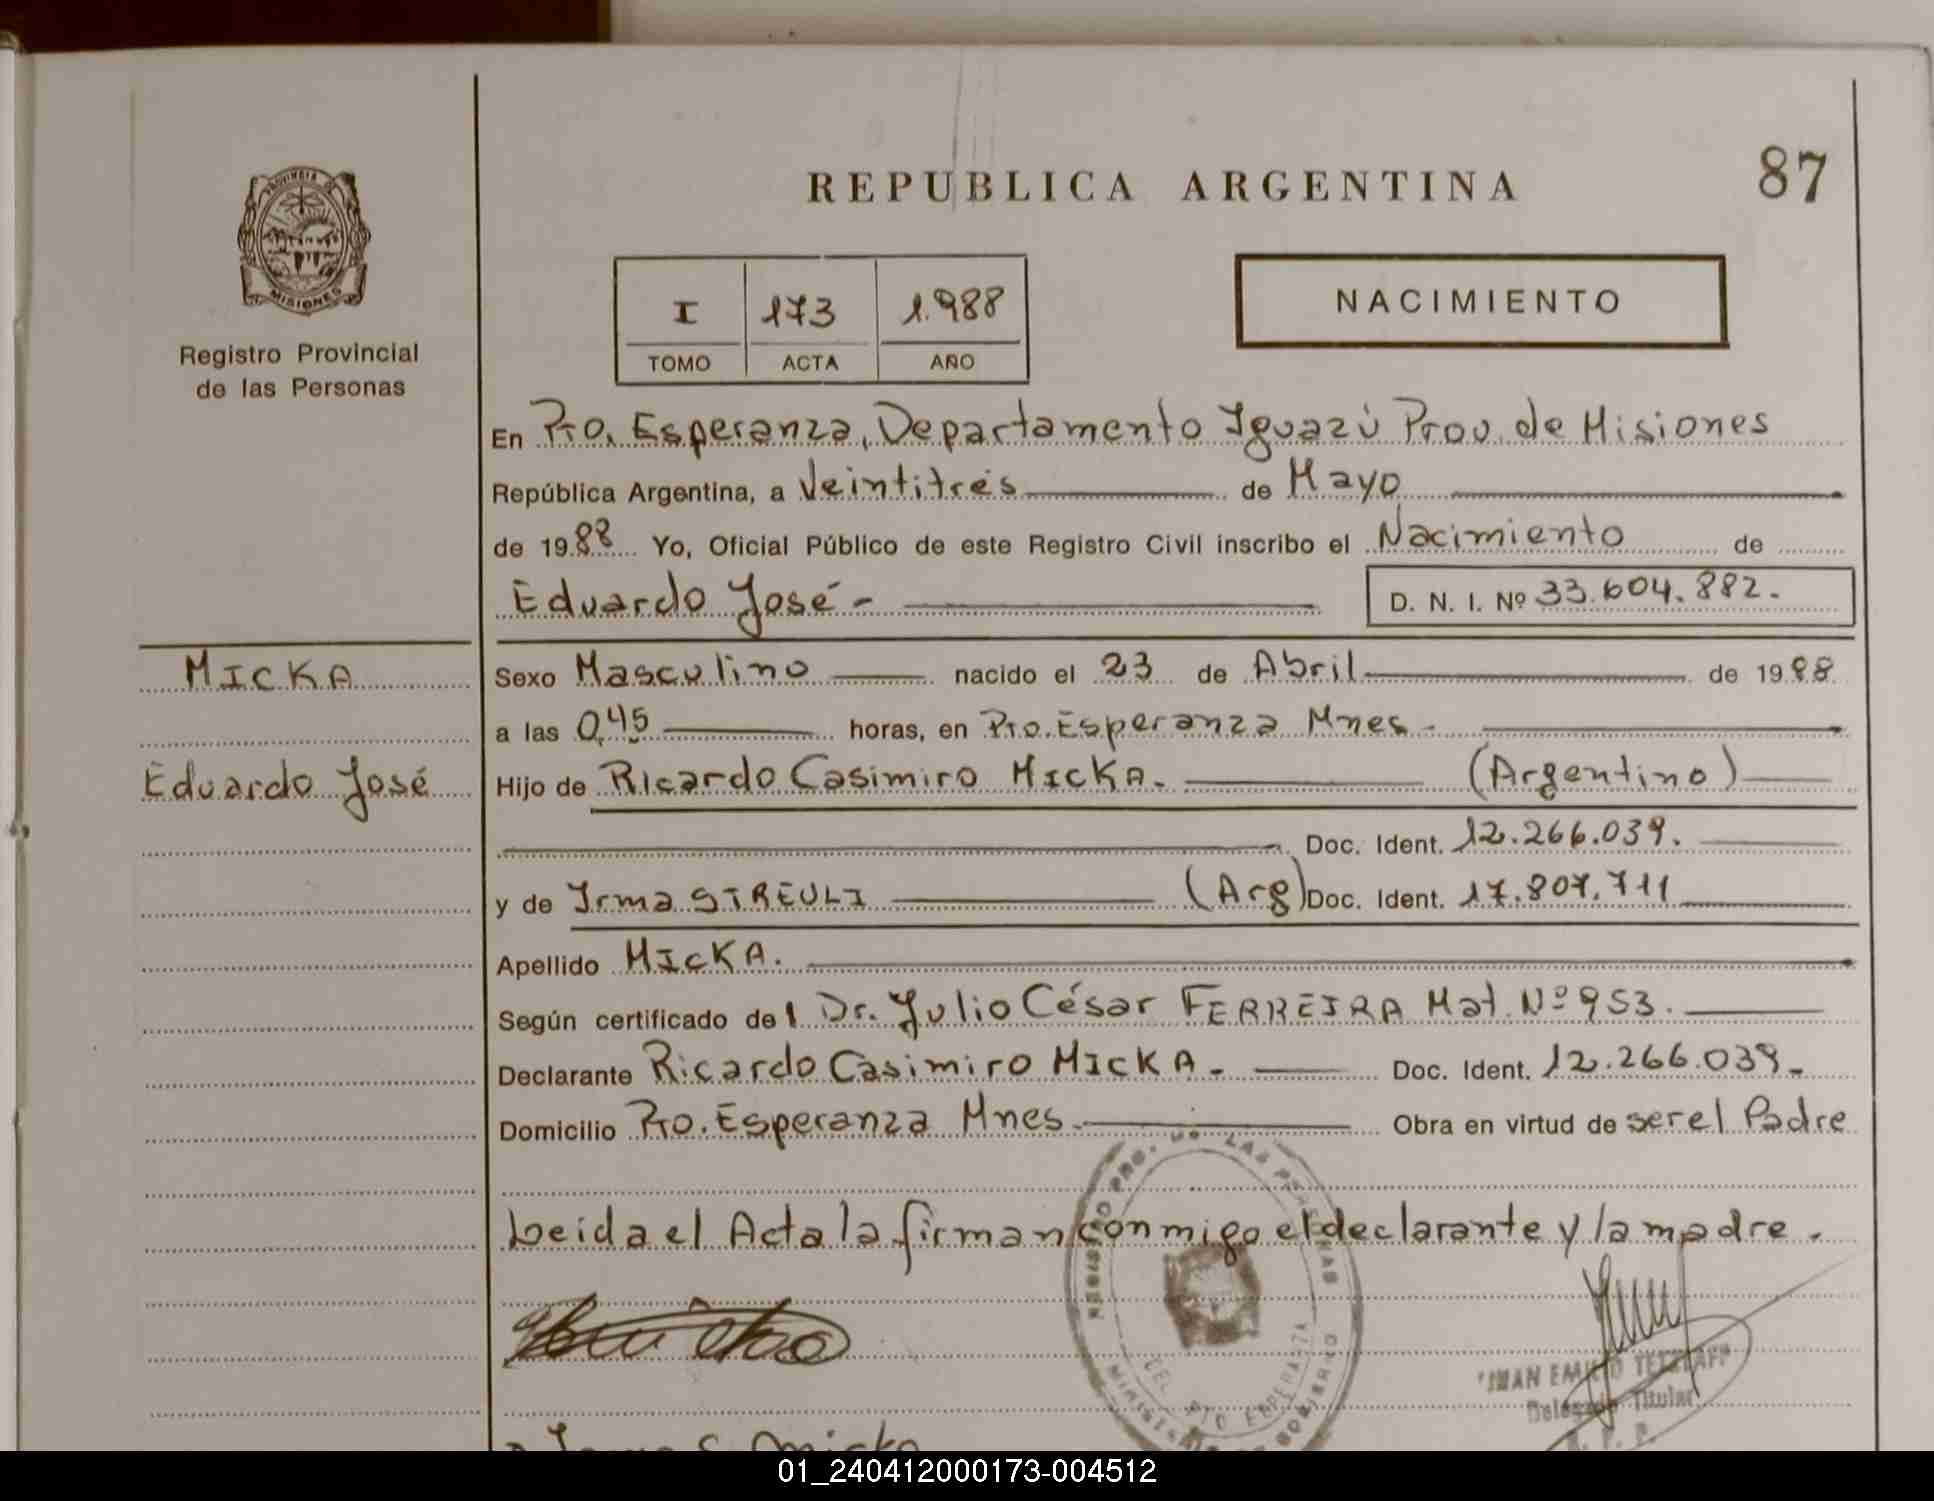 REPUBLICA ARGENTINA
87
PROVINCIA DE
MISIONES
Registro Provincial
de las Personas
I 173 1.988
TOMO ACTA AÑO
NACIMIENTO
En Pto. Esperanza, Departamento Iguazú Prov. de Misiones
República Argentina, a Veintitrés de Mayo
de 1988 Yo, Oficial Público de este Registro Civil inscribo el Nacimiento de
Eduardo José - D. N. I. Nº 33.604.882.
MICKA
Eduardo José
Sexo Masculino nacido el 23 de Abril de 1988
a las 0,45 horas, en Pto. Esperanza Mnes -
Hijo de Ricardo Casimiro MICKA. (Argentino)
Doc. Ident. 12.266.039.
y de Irma STREULI (Arg) Doc. Ident. 17.807.711
Apellido MICKA.
Según certificado del Dr. Julio César FERREIRA Mat. Nº 953.
Declarante Ricardo Casimiro MICKA - Doc. Ident. 12.266.039-
Domicilio Pto. Esperanza Mnes. Obra en virtud de ser el Padre
Leida el Acta la firman conmigo el declarante y la madre.
REGISTRO PRO. DE LAS PERSONAS
DEL PTO ESPERANZA
MINISTERIO DE GOBIERNO
JUAN EMILIO
Delegado Titular
R. P. P.
01_240412000173-004512